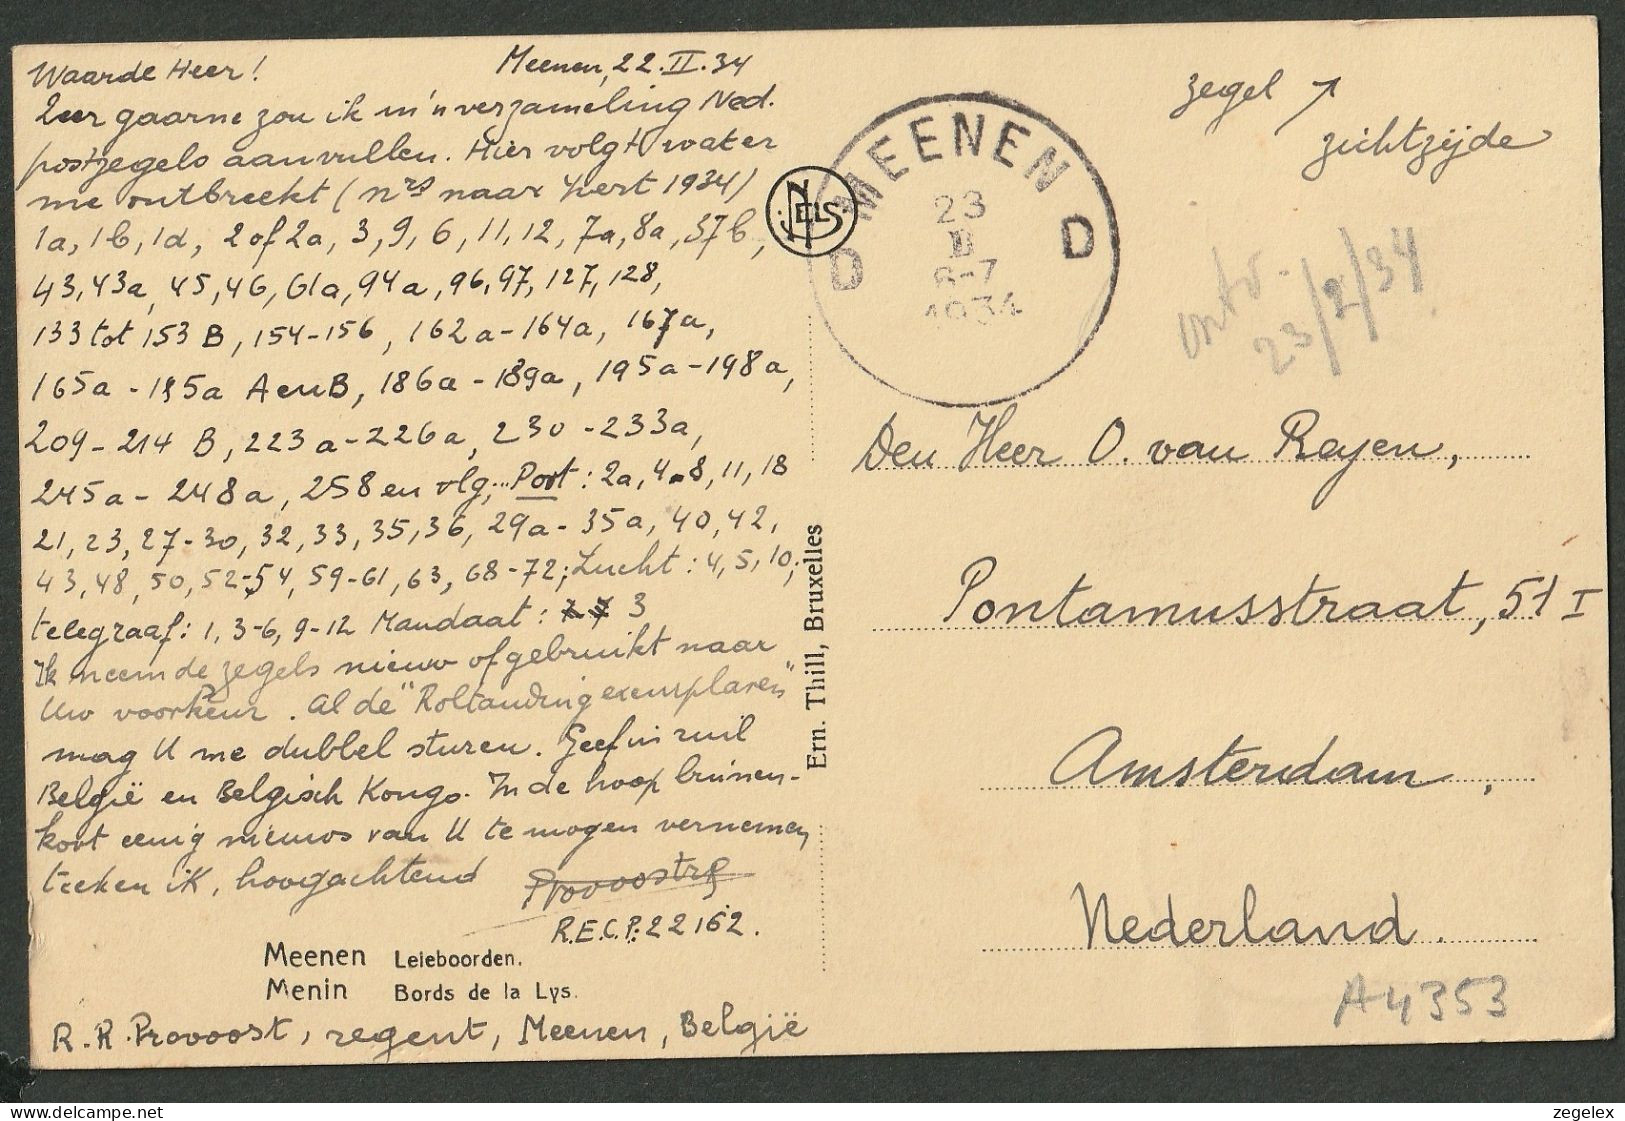 Waarde Heer! Meenen, 22.II.34
Zeer gaarne zou ik m'n verzameling Ned.
postzegels aanvullen. Hier volgt wat er
me ontbreekt (nrs naar Yvert 1934)
1a, 1b, 1d, 2 of 2a, 3, 9, 6, 11, 12, 7a, 8a, 37b,
43, 43a, 45, 46, 61a, 94a, 96, 97, 127, 128,
133 tot 153 B, 154-156, 162a-164a, 167a,
165a - 185a A en B, 186a - 189a, 195a-198a,
209-214 B, 223a-226a, 230-233a,
245a-248a, 258 en vlg; Port: 2a, 4-8, 11, 18
21, 23, 27-30, 32, 33, 35, 36, 29a-35a, 40, 42,
43, 48, 50, 52-54, 59-61, 63, 68-72; Lucht: 4, 5, 10;
telegraaf: 1, 3-6, 9-12 Mandaat: 3
Ik neem de zegels nieuw of gebruikt naar
Uw voorkeur. Al de "Roltanding exemplaren"
mag U me dubbel sturen. Geef in ruil
België en Belgisch Kongo. In de hoop binnen-
kort eenig nieuws van U te mogen vernemen,
teeken ik, hoogachtend Provoost
R.E.C.P. 22162.
Meenen Leieboorden.
Menin Bords de la Lys.
R.-R. Provoost, regent, Meenen, België
NELS
Ern. Thill, Bruxelles
MEENEN
D D
23
II
6-7
1934
zegel ↗
zichtzijde
ontv.
23/2/34
Den Heer O. van Reyen,
Pontanusstraat, 51 I
Amsterdam,
Nederland.
A4353
delcampe.net
zegelex